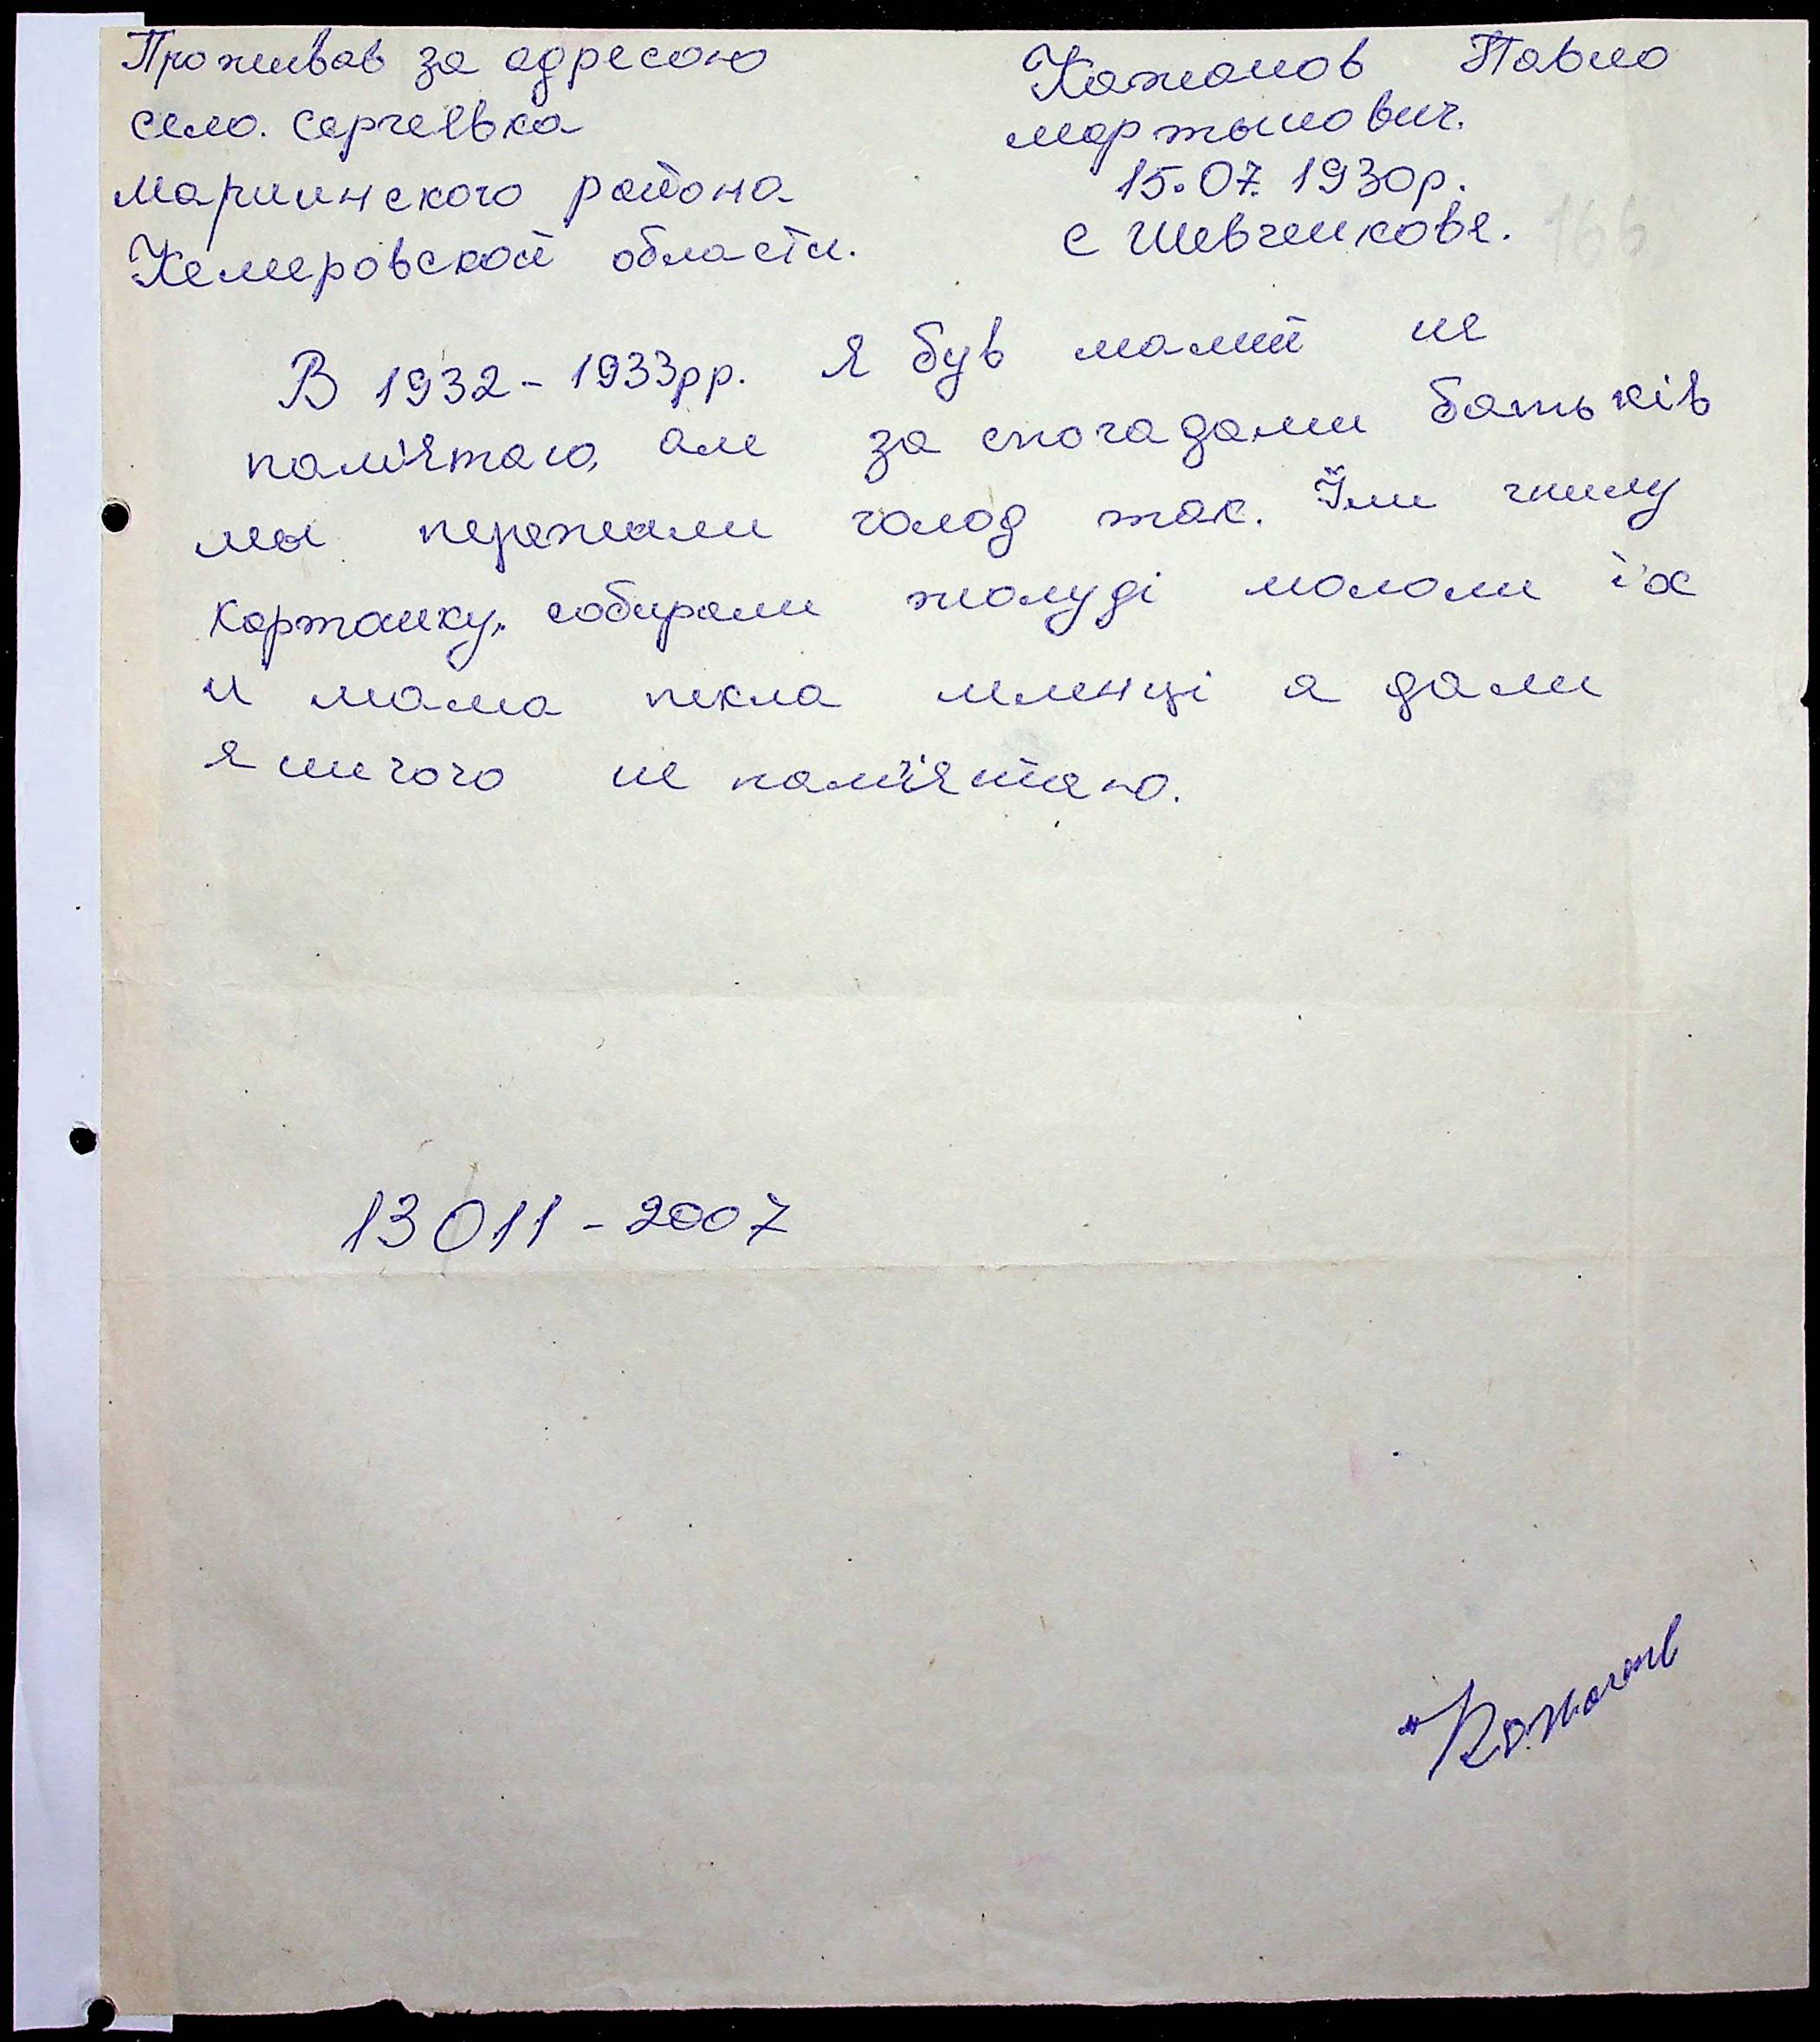 Проживав за адресою
село. Сергеевка
Мариинского района
Кемеровской области.
Кажанов Павло
мартынович.
15.07. 1930р.
с Шевченкове.
166
В 1932-1933рр. я був малий не
пам'ятаю, але за спогадами батьків
мы пережили голод так. Їли гнилу
картошку, собирали жолуді мололи їх
и мама пекла млинці а дали
я ничого не пам'ятаю.
13 011-2007
Кажанов